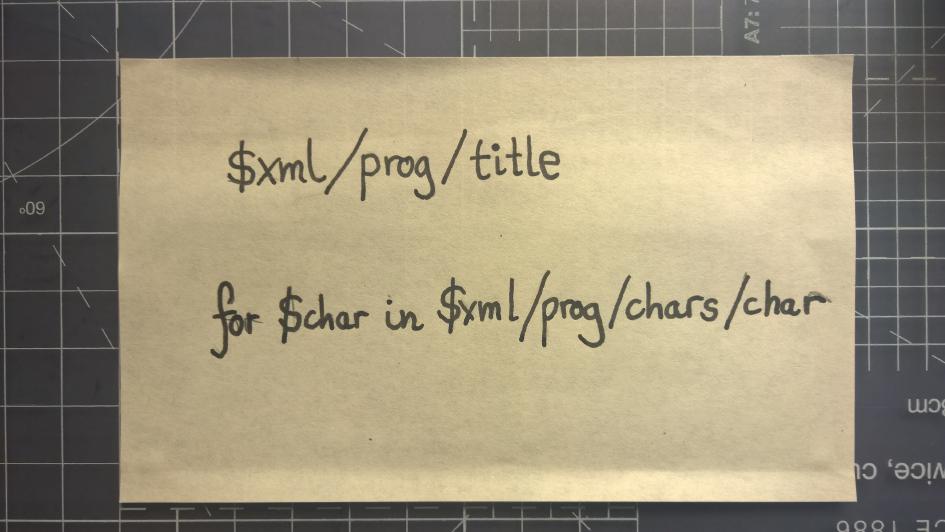 $xml/prog/title
for $char in $xml/prog/chars/char
A7:
60°
8cm
vice, cu
E 1886